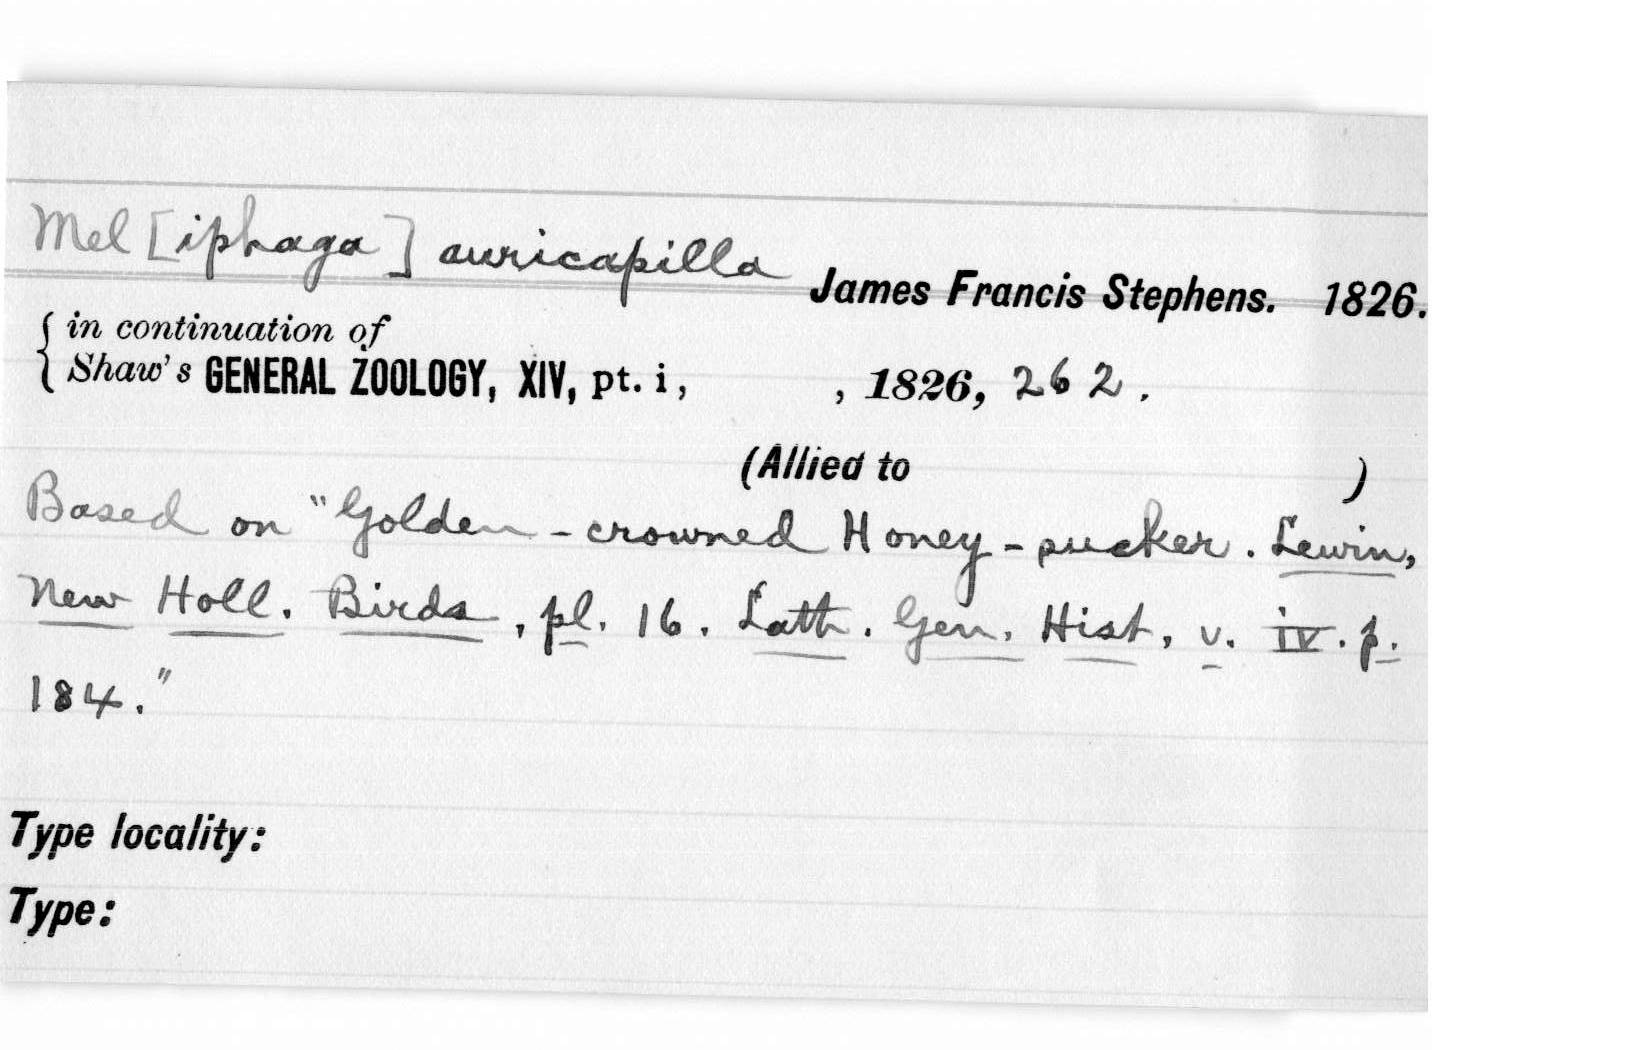 Mel [iphaga] auricapilla James Francis Stephens. 1826.
{ in continuation of
Shaw's GENERAL ZOOLOGY, XIV, pt. i, , 1826, 262.
(Allied to )
Based on "Golden-crowned Honey-sucker. Lewin,
New Holl. Birds, pl. 16. Lath. Gen. Hist, v. iv. p.
184."
Type locality:
Type: